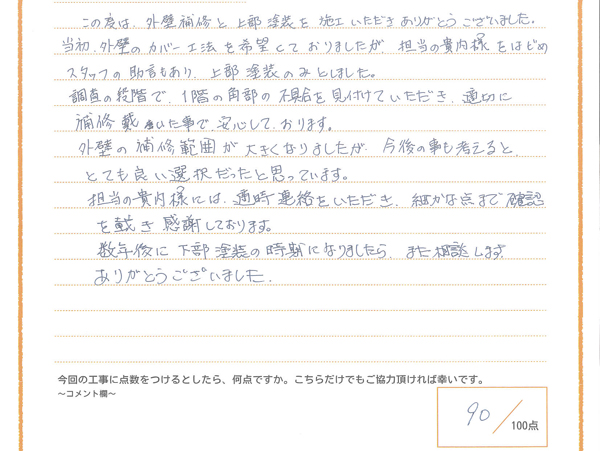 この度は、外壁補修と上部塗装を施工いただきありがとうございました。
当初、外壁のカバー工法を希望しておりましたが、担当の貴内様をはじめ
スタッフの助言もあり、上部塗装のみとしました。
調査の段階で、1階の角部の不具合を見付けていただき、適切に
補修戴いた事で、安心しております。
外壁の補修範囲が大きくなりましたが、今後の事も考えると、
とても良い選択だったと思っています。
担当の貴内様には、適時連絡をいただき、細かな点まで確認
を戴き感謝しております。
数年後に下部塗装の時期になりましたら、また相談します。
ありがとうございました。
今回の工事に点数をつけるとしたら、何点ですか。こちらだけでもご協力頂ければ幸いです。
〜コメント欄〜
90/100点